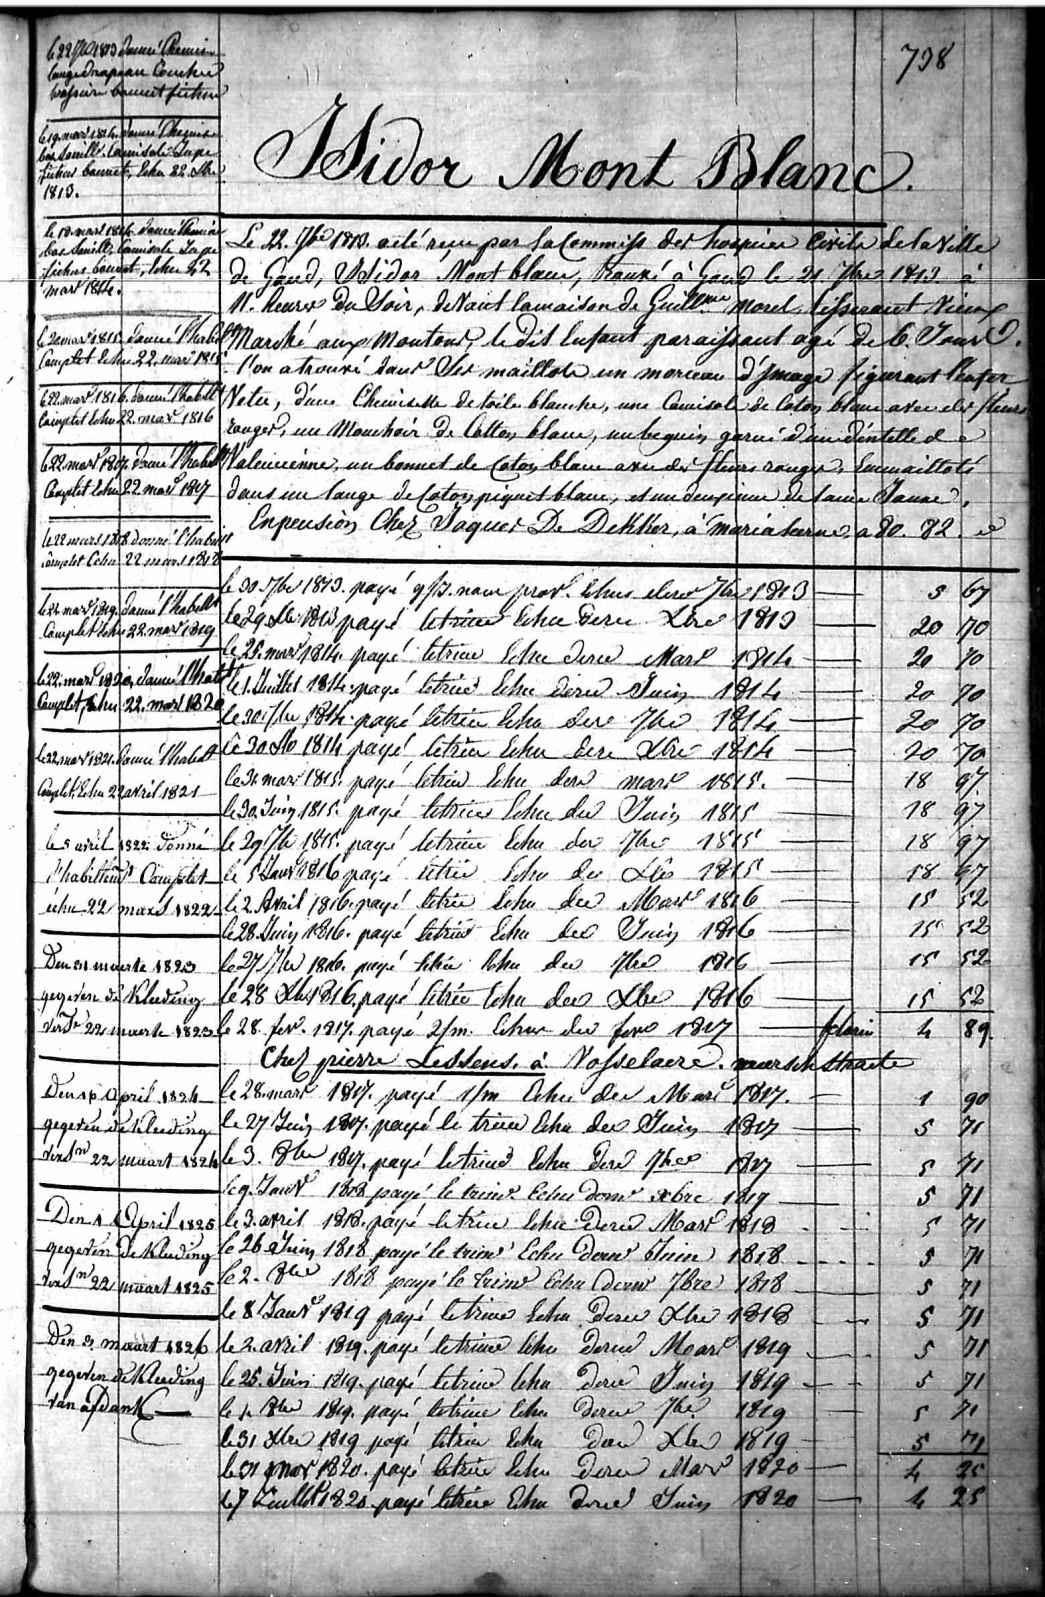 738
Isidor Mont Blanc.
le 22 7bre 1813 donné Chemise
lange drapeau Couche
brassiere bonnet fichu
le 19 mars 1814. donné Chemise
bas Souill. Camisole Jupe
fichu bonnet, Echu 22 Xbre
1813.
le 18 mars 1814. donné Chemise
bas Souill. Camisole Jupe
fichu bonnet, Echu 22
mars 1814.
le 20 mars 1815. donné l'habill
Complet Echu 22. mars 1815
le 22. mars 1816. donné l'habill
Complet Echu 22. mars 1816
le 22. mars 1817. donné l'habill
Complet Echu 22 mars 1817
le 22 mars 1818 donné l'habill
Complet Echu 22 mars 1818
le 22 mars 1819. donné l'habill
Complet Echu 22. mars 1819
le 22. mars 1820, donné l'habill
Complet, Echu 22. mars 1820
le 22 mars 1821. donné l'habill
Complet, Echu 22 avril 1821
le 5 avril 1822. donné
l'habillem Complet
échu 22 mars 1822
Den 31 maerte 1823
gegeven de Kleeding
verst 22 maerte 1823
Den April 1824
gegeven de Kleeding
verst 22 maart 1824
Den 1 April 1825
gegeven de Kleeding
verst 22 maart 1825
Den 3 maart 1826
gegeven de Kleeding
van afdank
Le 22. 7bre 1813. a été reçu par la Commiss des hospices Civils de la Ville
de Gand, Isidor Mont blanc, trouvé à Gand le 21 7bre 1813 à
11. heures du Soir, devant la maison de Guillme Morel, tisserant Vieux
Marché aux Moutons, le dit Enfant paraissant agé de 6. Jours.
l'on a trouvé dans Ses maillots un morceau d'Image figurant l'enfer
Vetu, d'une Chemisette de toile blanche, une Camisole de Coton blanc avec des fleurs
rouges, un Mouchoir de Cotton blanc, un beguin garni d'une dentelle de
Valencienne, un bonnet de Coton blanc avec des fleurs rouges, Emmailloté
dans un lange de Coton piquet blanc, et un deuxieme de laine Jaune.
En pension Chez Jaques De Dekker, à Mariakerke, a 80. 82.
le 30 7bre 1813. payé 9/J. nour prov. Echus dere 7bre 1813 5 67
le 29 Xbre 1813 payé letrim Echu dere Xbre 1813 20 70
le 28. mars 1814. payé letrim Echu dere Mars 1814 20 70
le 1. Juillet 1814. payé letrim Echu dere Juin 1814 20 70
le 30 7bre 1814. payé letrim Echu dere 7bre 1814 20 70
le 30 Xb 1814 payé letrim Echu dere Xbre 1814 20 70
le 31 mars 1815. payé letrim Echu dere mars 1815. 18 97.
le 30. Juin 1815. payé letrim Echu der Juin 1815 18 97
le 29 7b 1815. payé letrim Echu der 7bre 1815 18 97
le 5 Janv 1816 payé letrim Echu der Xbr 1815 18 97
le 2 Avril 1816. payé letrim Echu der Mars 1816 15 52
le 28. Juin 1816. payé letrim Echu der Juin 1816 15 52
le 27 7bre 1816. payé letrim Echu der 7bre 1816 15 52
le 28 Xb 1816. payé letrim Echu der Xbre 1816 15 52
le 28. fevr. 1817. payé 2/m. Echus der fevr 1817 florin 4 89.
Chez pierre Lessens. à Vosselaere. meerschstraete
le 28. mars 1817. payé 1/m Echu der Mars 1817. 1 90
le 27 Juin 1817. payé le trim Echu der Juin 1817 5 71
le 3. 8bre 1817. payé letrim Echu dere 7bre 1817 5 71
le 9. Janv 1818 payé le trim Echu dern xbre 1819 5 71
le 3. avril 1818. payé letrim Echu dere Mars 1818 5 71
le 26 Juin 1818 payé le trim Echu dern Juin 1818 5 71
le 2. 8bre 1818 payé le trim Echu dern 7bre 1818 5 71
le 8 Janv 1819 payé letrim Echu dere Xbre 1818 5 71
le 2. avril 1819. payé letrim Echu dere Mars 1819 5 71
le 25. Juin 1819. payé letrim Echu dere Juin 1819 5 71
le 1. 8bre 1819. payé letrim Echu dere 7bre 1819 5 71
le 31 Xbre 1819 payé letrim Echu der Xbre 1819 5 71
le 31 mars 1820. payé letrim Echu dere Mars 1820 4 25
le 7 Juillet 1820. payé letrim Echu dere Juin 1820 4 25